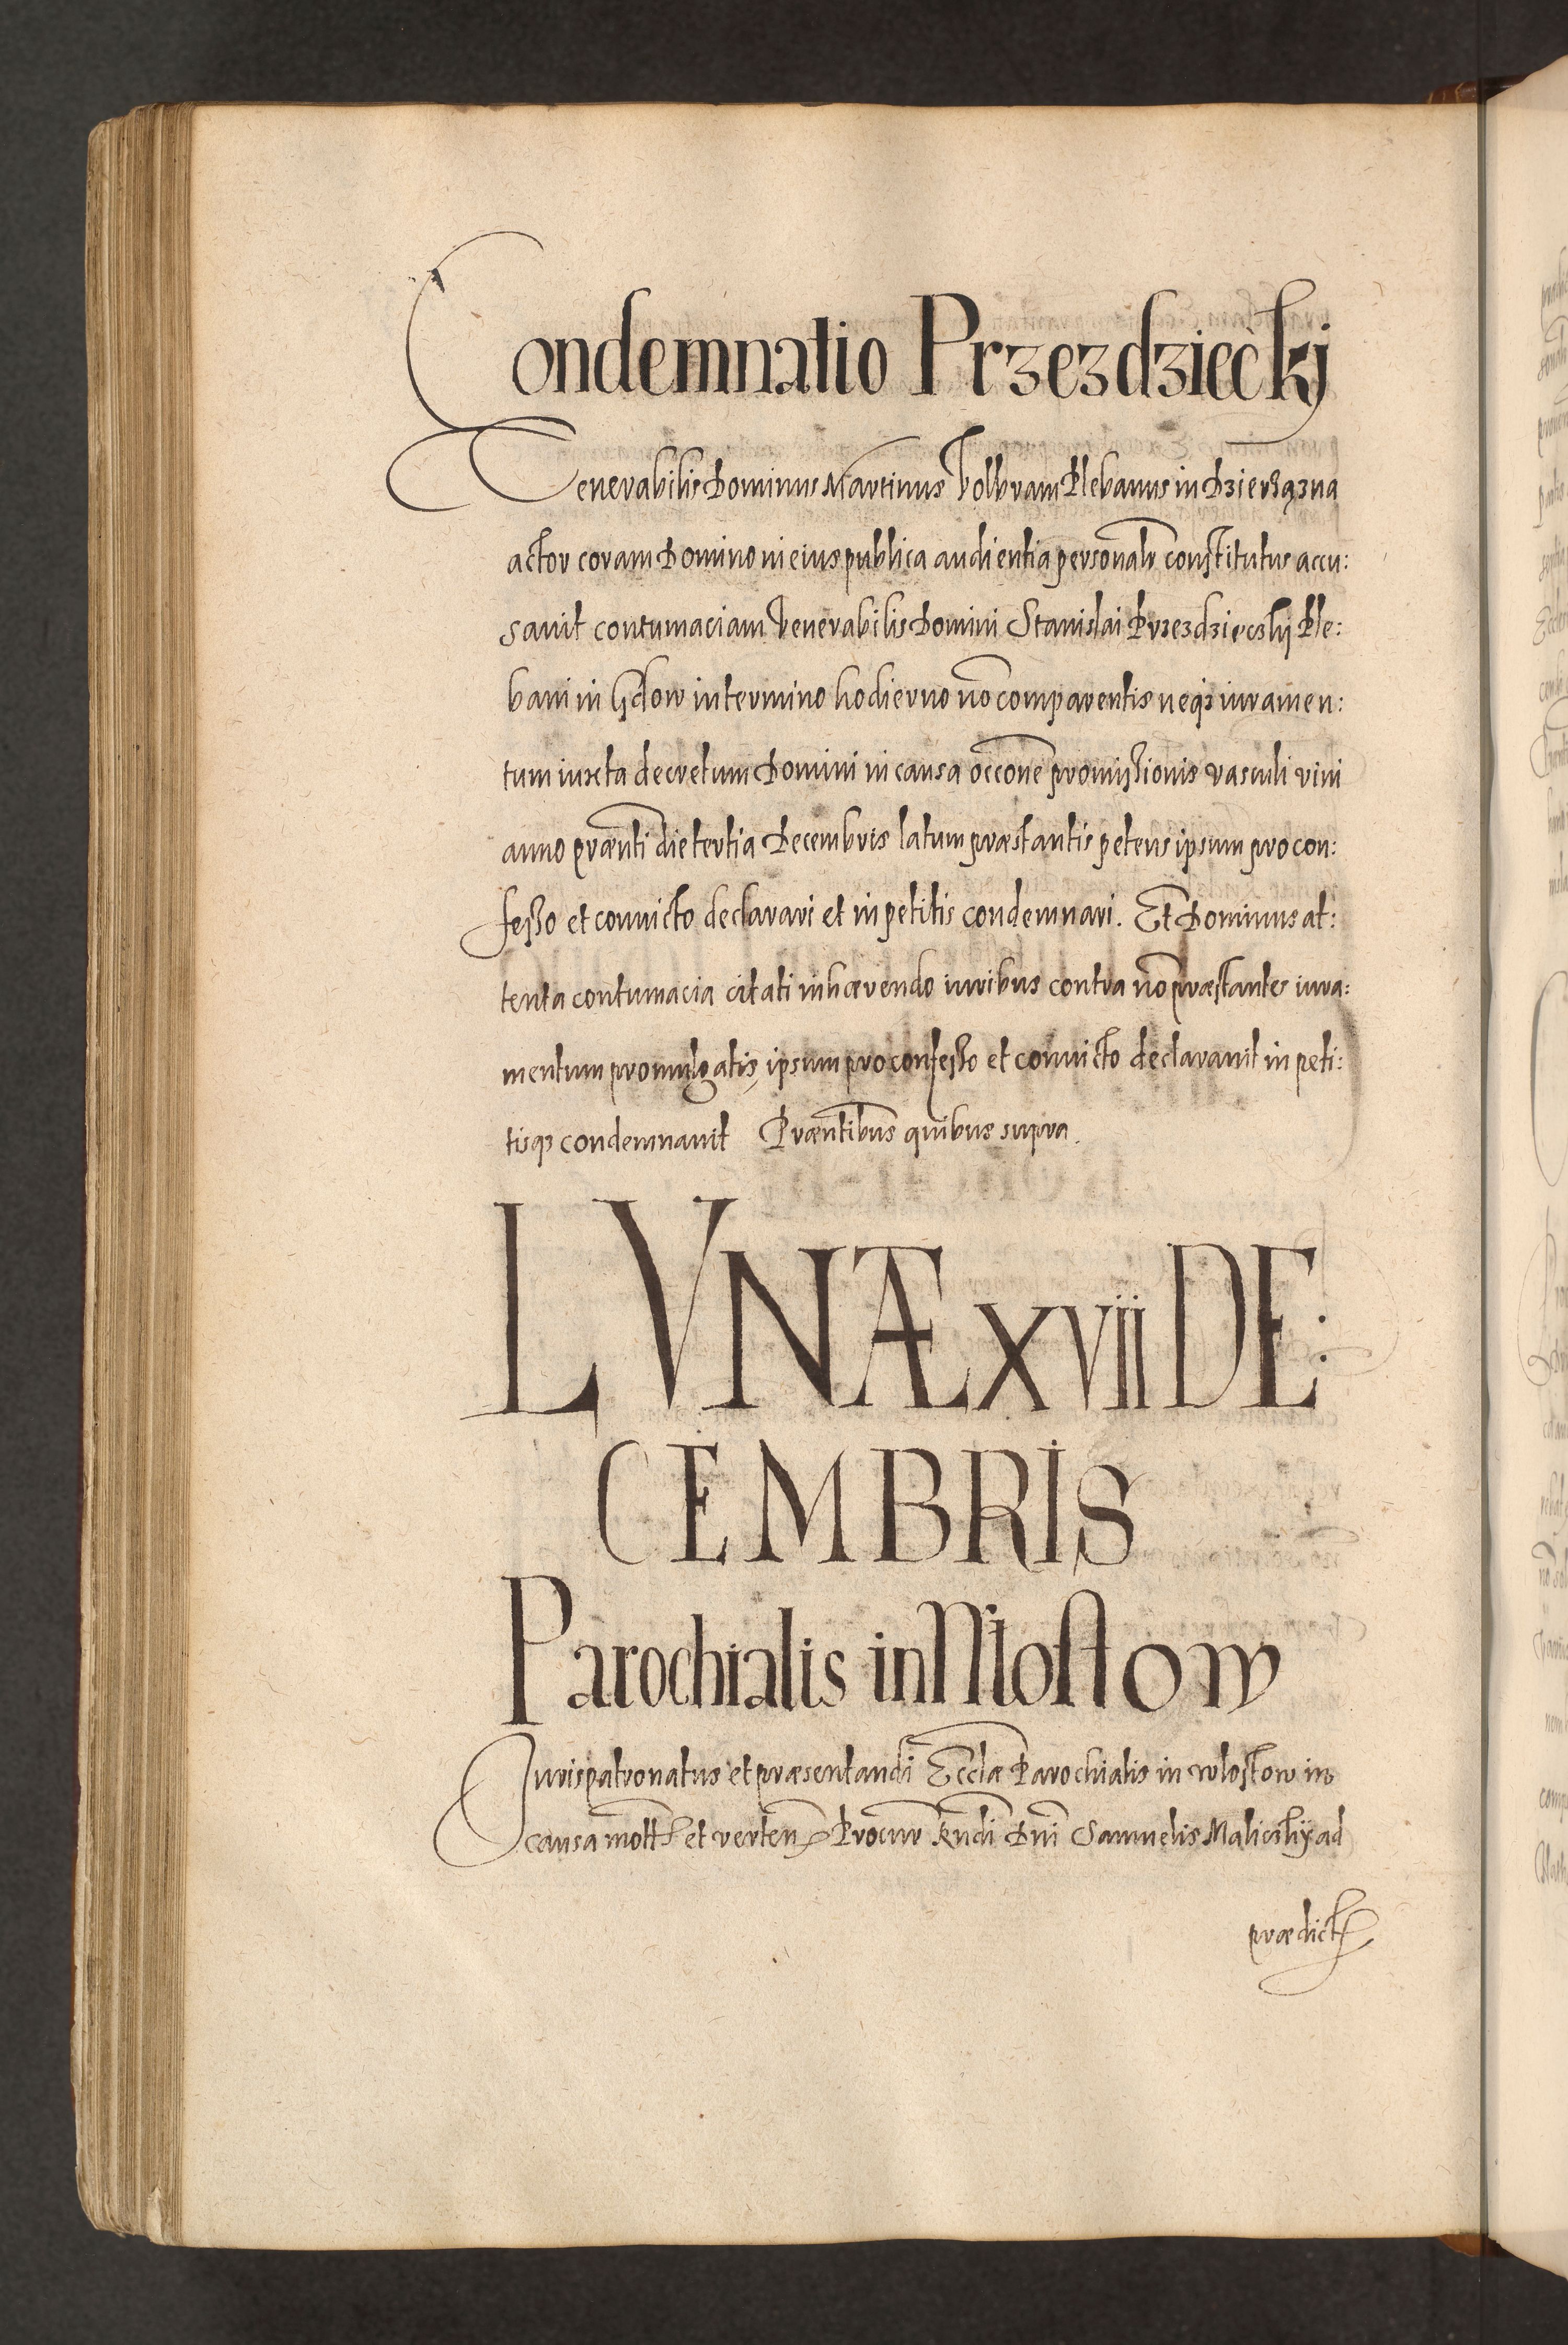 Condemnatio Przezdziecki
Venerabilis Dominus Martinus Volbram Plebanus in Dzierzązna
actor coram Domino in eius publica audientia personalr constitutus accu:
sauit contumaciam Venerabilis Domini Stanislai Przezdzieczkij Ple:
bani in Gdow in termino hodierno nō comparentis neq3 iuramen:
tum iuxta decretum Domini in causa occōne promissionis vasculi vini
anno præn̄ti die tertia Decembris latum præstantis petens ipsum pro con:
fesso et conuicto declarari et in petitis condemnari. Et Dominus at:
tenta contumacia citati inhærendo iuribus contra nō præstantes iura:
mentum promulgatis, ipsum pro confesso et conuicto declarauit in peti:
tisq3 condemnauit Præn̄tibus quibus supra.
LVNÆ XVII DE:
CEMBRIS
Parochialis in Wlostow
Jurispatronatus et præsentandi Eccłæ Parochialis in Wlostow in
causa mott et verten Procur Dn̄i Samuelis Maliczkij ad
prædict